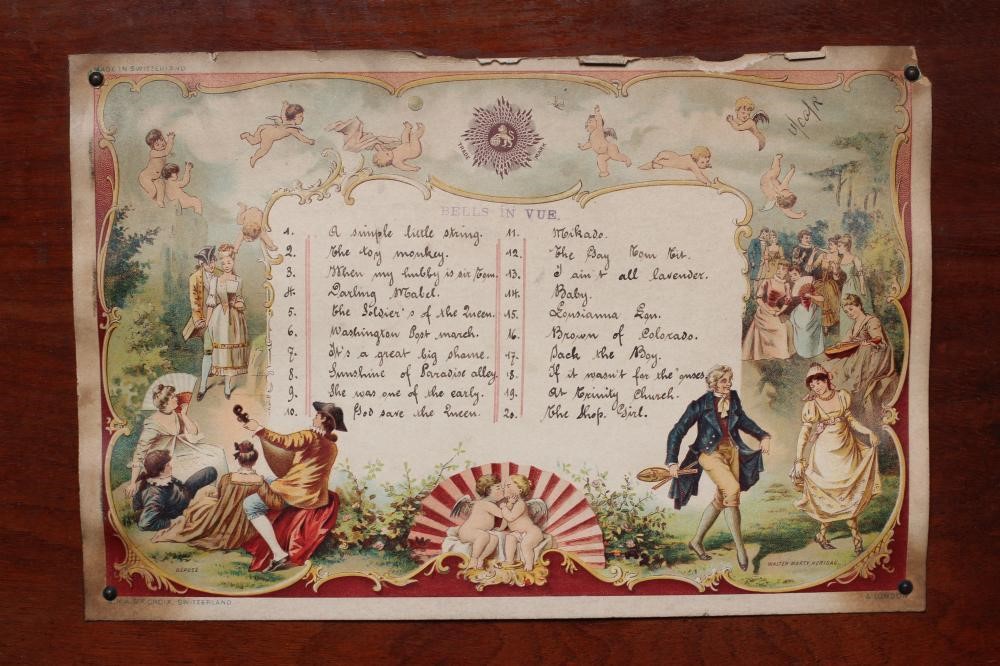 MADE IN SWITZERLAND
TRADE MARK
BELLS IN VUE.
1. A simple little string.
2. The toy monkey.
3. When my hubby is sir Tom.
4. Darling Mabel.
5. The Soldier's of the Queen.
6. Washington Post march.
7. It's a great big shame.
8. Sunshine of Paradise alley.
9. She was one of the early.
10. God save the Queen.
11. Mikado.
12. The Bay Tom Tit.
13. I ain't all lavender.
14. Baby.
15. Lousianna Lou.
16. Brown of Colorado.
17. Jack the Boy.
18. If it wasn't for the 'ouses.
19. At Trinity Church.
20. The Shop Girl.
DÉPOSÉ
WALTER MARTY, HERISAU.
CROIX, SWITZERLAND
& LONDON